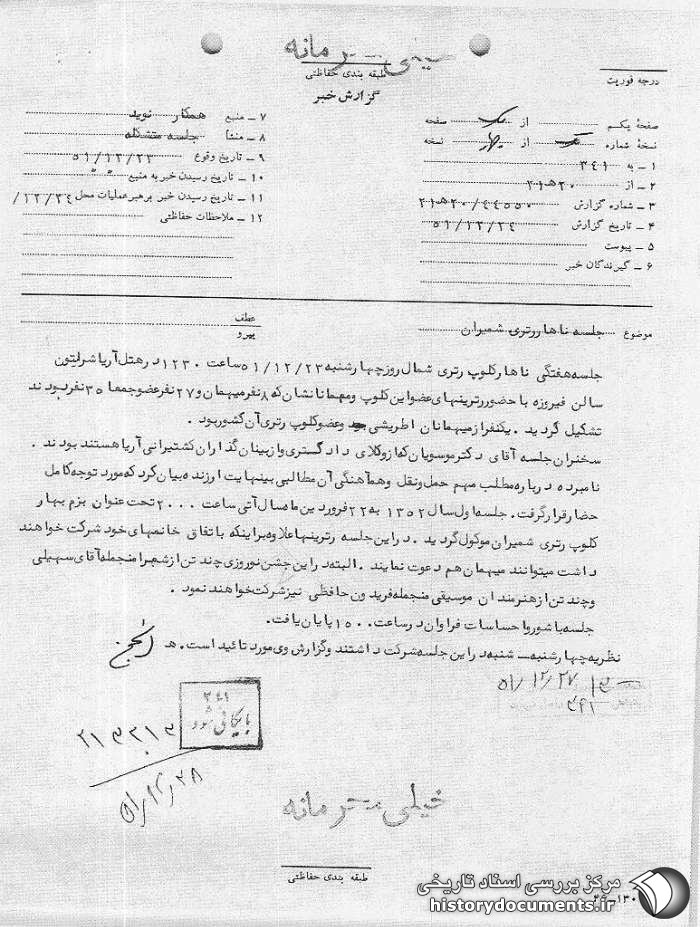 خیلی محرمانه
طبقه بندی حفاظتی
گزارش خبر
درجه فوریت
صفحهٔ یکم از یک صفحه
نسخهٔ شماره یک از چهار نسخه
۱ ــ به ۳۴۱
۲ ــ از ۲۰ هـ ۲۱
۳ ــ شماره گزارش ۲۱هـ۲۰/۴۴۵۵۰
۴ ــ تاریخ گزارش ۵۱/۱۲/۲۴
۵ ــ پیوست
۶ ــ گیرندگان خبر
۷ ــ منبع همکار نوید
۸ ــ منشأ جلسه متشکله
۹ ــ تاریخ وقوع ۵۱/۱۲/۲۳
۱۰ ــ تاریخ رسیدن خبر به منبع
۱۱ ــ تاریخ رسیدن خبر برهبر عملیات محل ۱۲/۲۴/
۱۲ ــ ملاحظات حفاظتی
موضوع جلسه ناهار رتری شمیران
عطف
پیرو
جلسه هفتگی ناهار کلوپ رتری شمال روز چهارشنبه ۵۱/۱۲/۲۳ ساعت ۱۲۳۰ در هتل آریا شرایتون
سالن فیروزه با حضور رترینهای عضو این کلوپ و مهمانانشان که ۸ نفر میهمان و ۲۷ نفر عضو جمعا ۳۵ نفر بودند
تشکیل گردید . یکنفر از میهمانان اطریشی بود و عضو کلوپ رتری آن کشور بود .
سخنران جلسه آقای دکتر موسویان که از وکلای دادگستری و از بنیان گذاران کشتیرانی آریا هستند بودند .
نامبرده درباره مطلب مهم حمل و نقل و هماهنگی آن مطالبی بینهایت ارزنده بیان کرد که مورد توجه کامل
حضار قرار گرفت . جلسه اول سال ۱۳۵۲ به ۲۲ فروردین ماه سال آتی ساعت ۲۰۰۰ تحت عنوان بزم بهار
کلوپ رتری شمیران موکول گردید . در این جلسه رترینها علاوه براینکه باتفاق خانمهای خود شرکت خواهند
داشت میتوانند میهمان هم دعوت نمایند . البته در این جشن نوروزی چند تن از شعرا منجمله آقای سهیلی
و چند تن از هنرمندان موسیقی منجمله فریدون حافظی نیز شرکت خواهند نمود .
جلسه با شور و احساسات فراوان در ساعت ۱۵۰۰ پایان یافت .
نظریه چهارشنبه ــ شنبه در این جلسه شرکت داشتند و گزارش وی مورد تائید است . هـ
۵۱/۱۲/۲۷
۳۴۱
بایگانی شود
خیلی محرمانه
طبقه بندی حفاظتی
مرکز بررسی اسناد تاریخی
historydocuments.ir